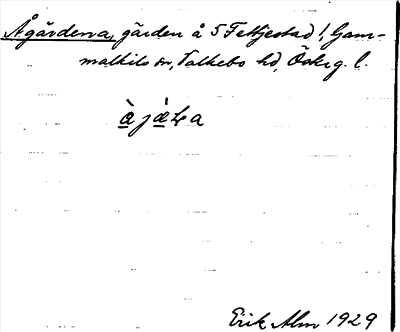 Ågärdena, gärden å 5 Fettjestad 1, Gam-
malkils sn, Valkebo hd, Östrg. l.
Erik Alm 1929